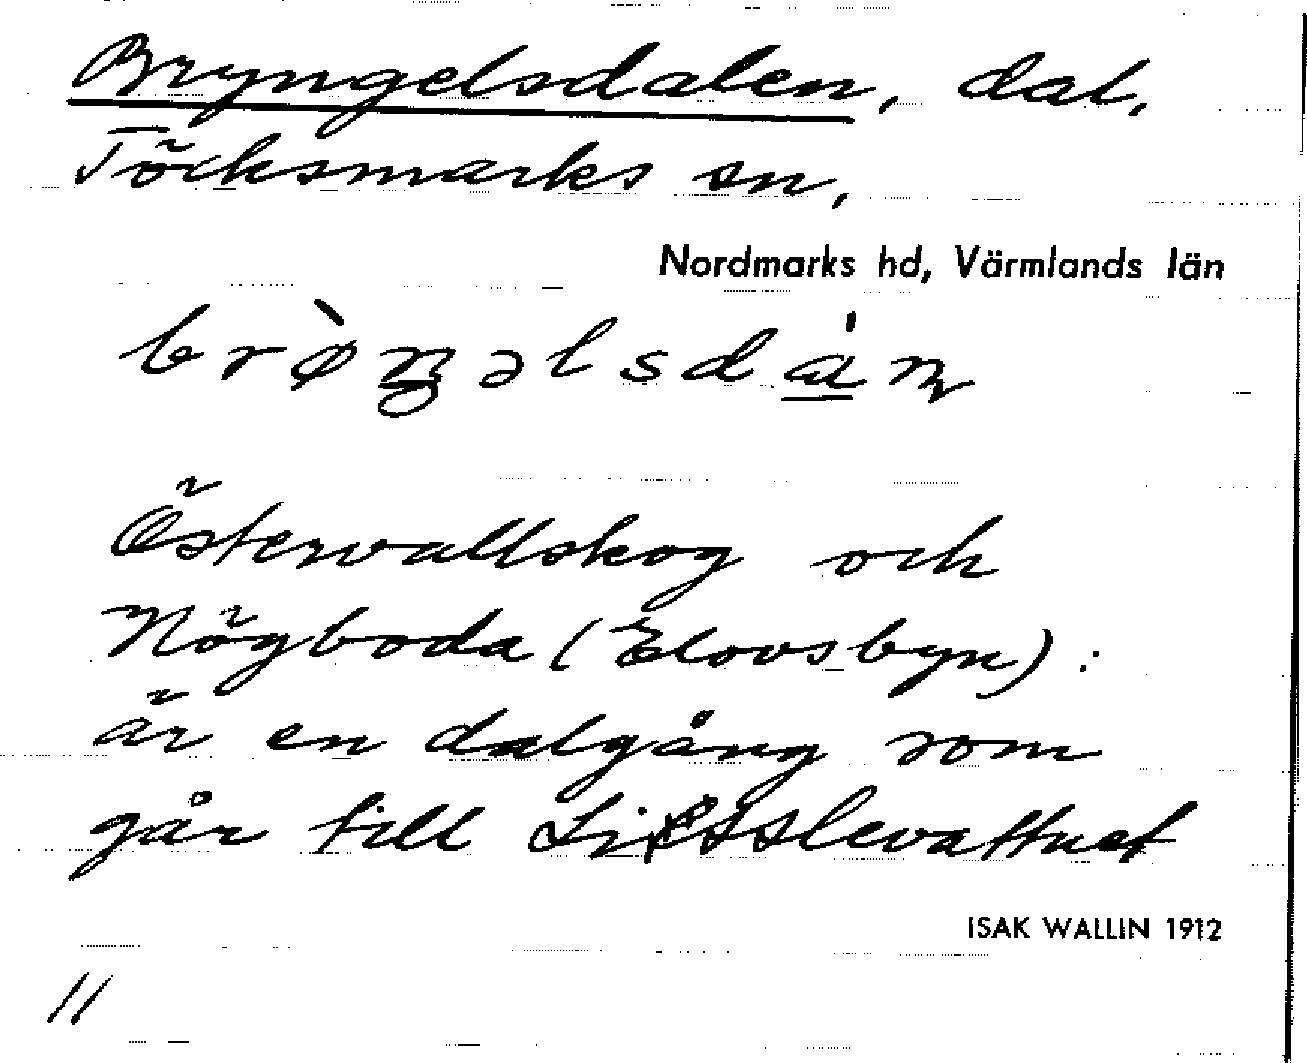 Bryngelsdalen, dal,
Töcksmarks sn,
Nordmarks hd, Värmlands län
Östervallskog och
Högboda (Elovsbyn):
är en dalgång som
går till
ISAK WALLIN 1912
11